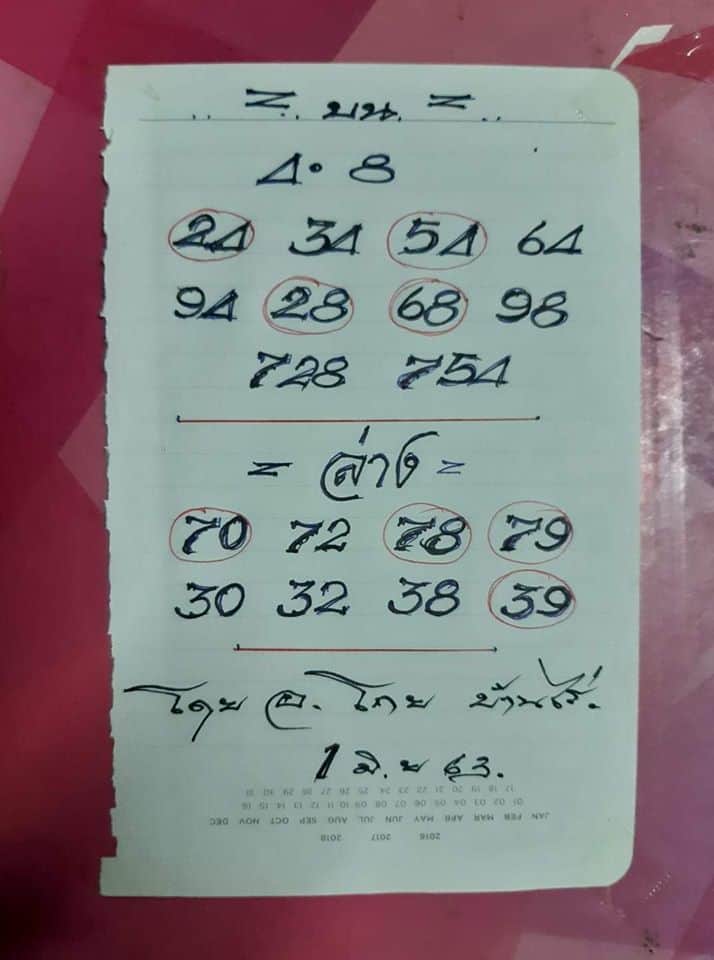 = บน. =
4 • 8
24 34 54 64
94 28 68 98
728 754
= ล่าง =
70 72 78 79
30 32 38 39
โดย อ. โกย บ้านไร่.
1 มิ.ย 63.
17 18 19 20 21 22 23 24 25 26 27 28 29 30 31
01 02 03 04 05 06 07 08 09 10 11 12 13 14 15 16
JAN FEB MAR APR MAY JUN JUL AUG SEP OCT NOV DEC
2016 2017 2018